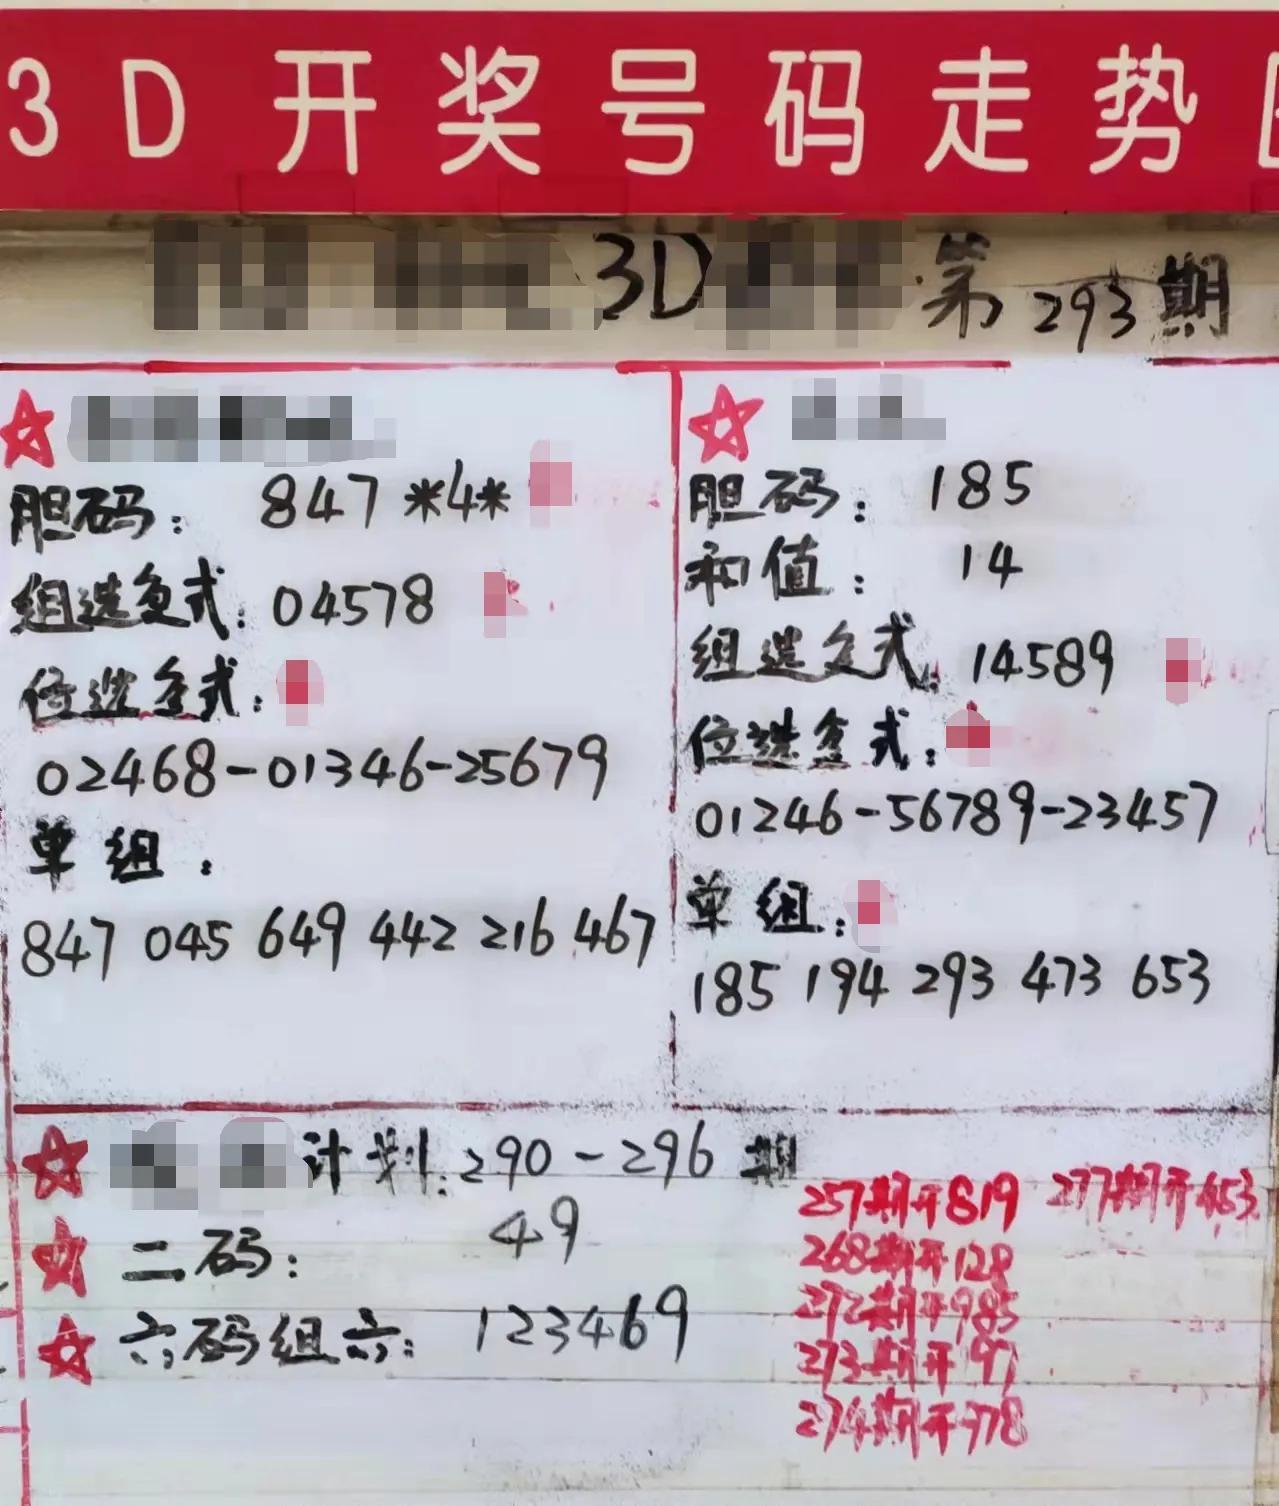 3D开奖号码走势
3D 第293期
胆码: 847 *4*
组选复式: 04578
位选复式:
02468-01346-25679
单组:
847 045 649 442 216 467
胆码: 185
和值: 14
组选复式: 14589
位选复式:
01246-56789-23457
单组:
185 194 293 473 653
计划: 290-296期
二码: 49
六码组六: 123469
257期开819 277期开453
268期开128
272期开985
273期开
274期开778